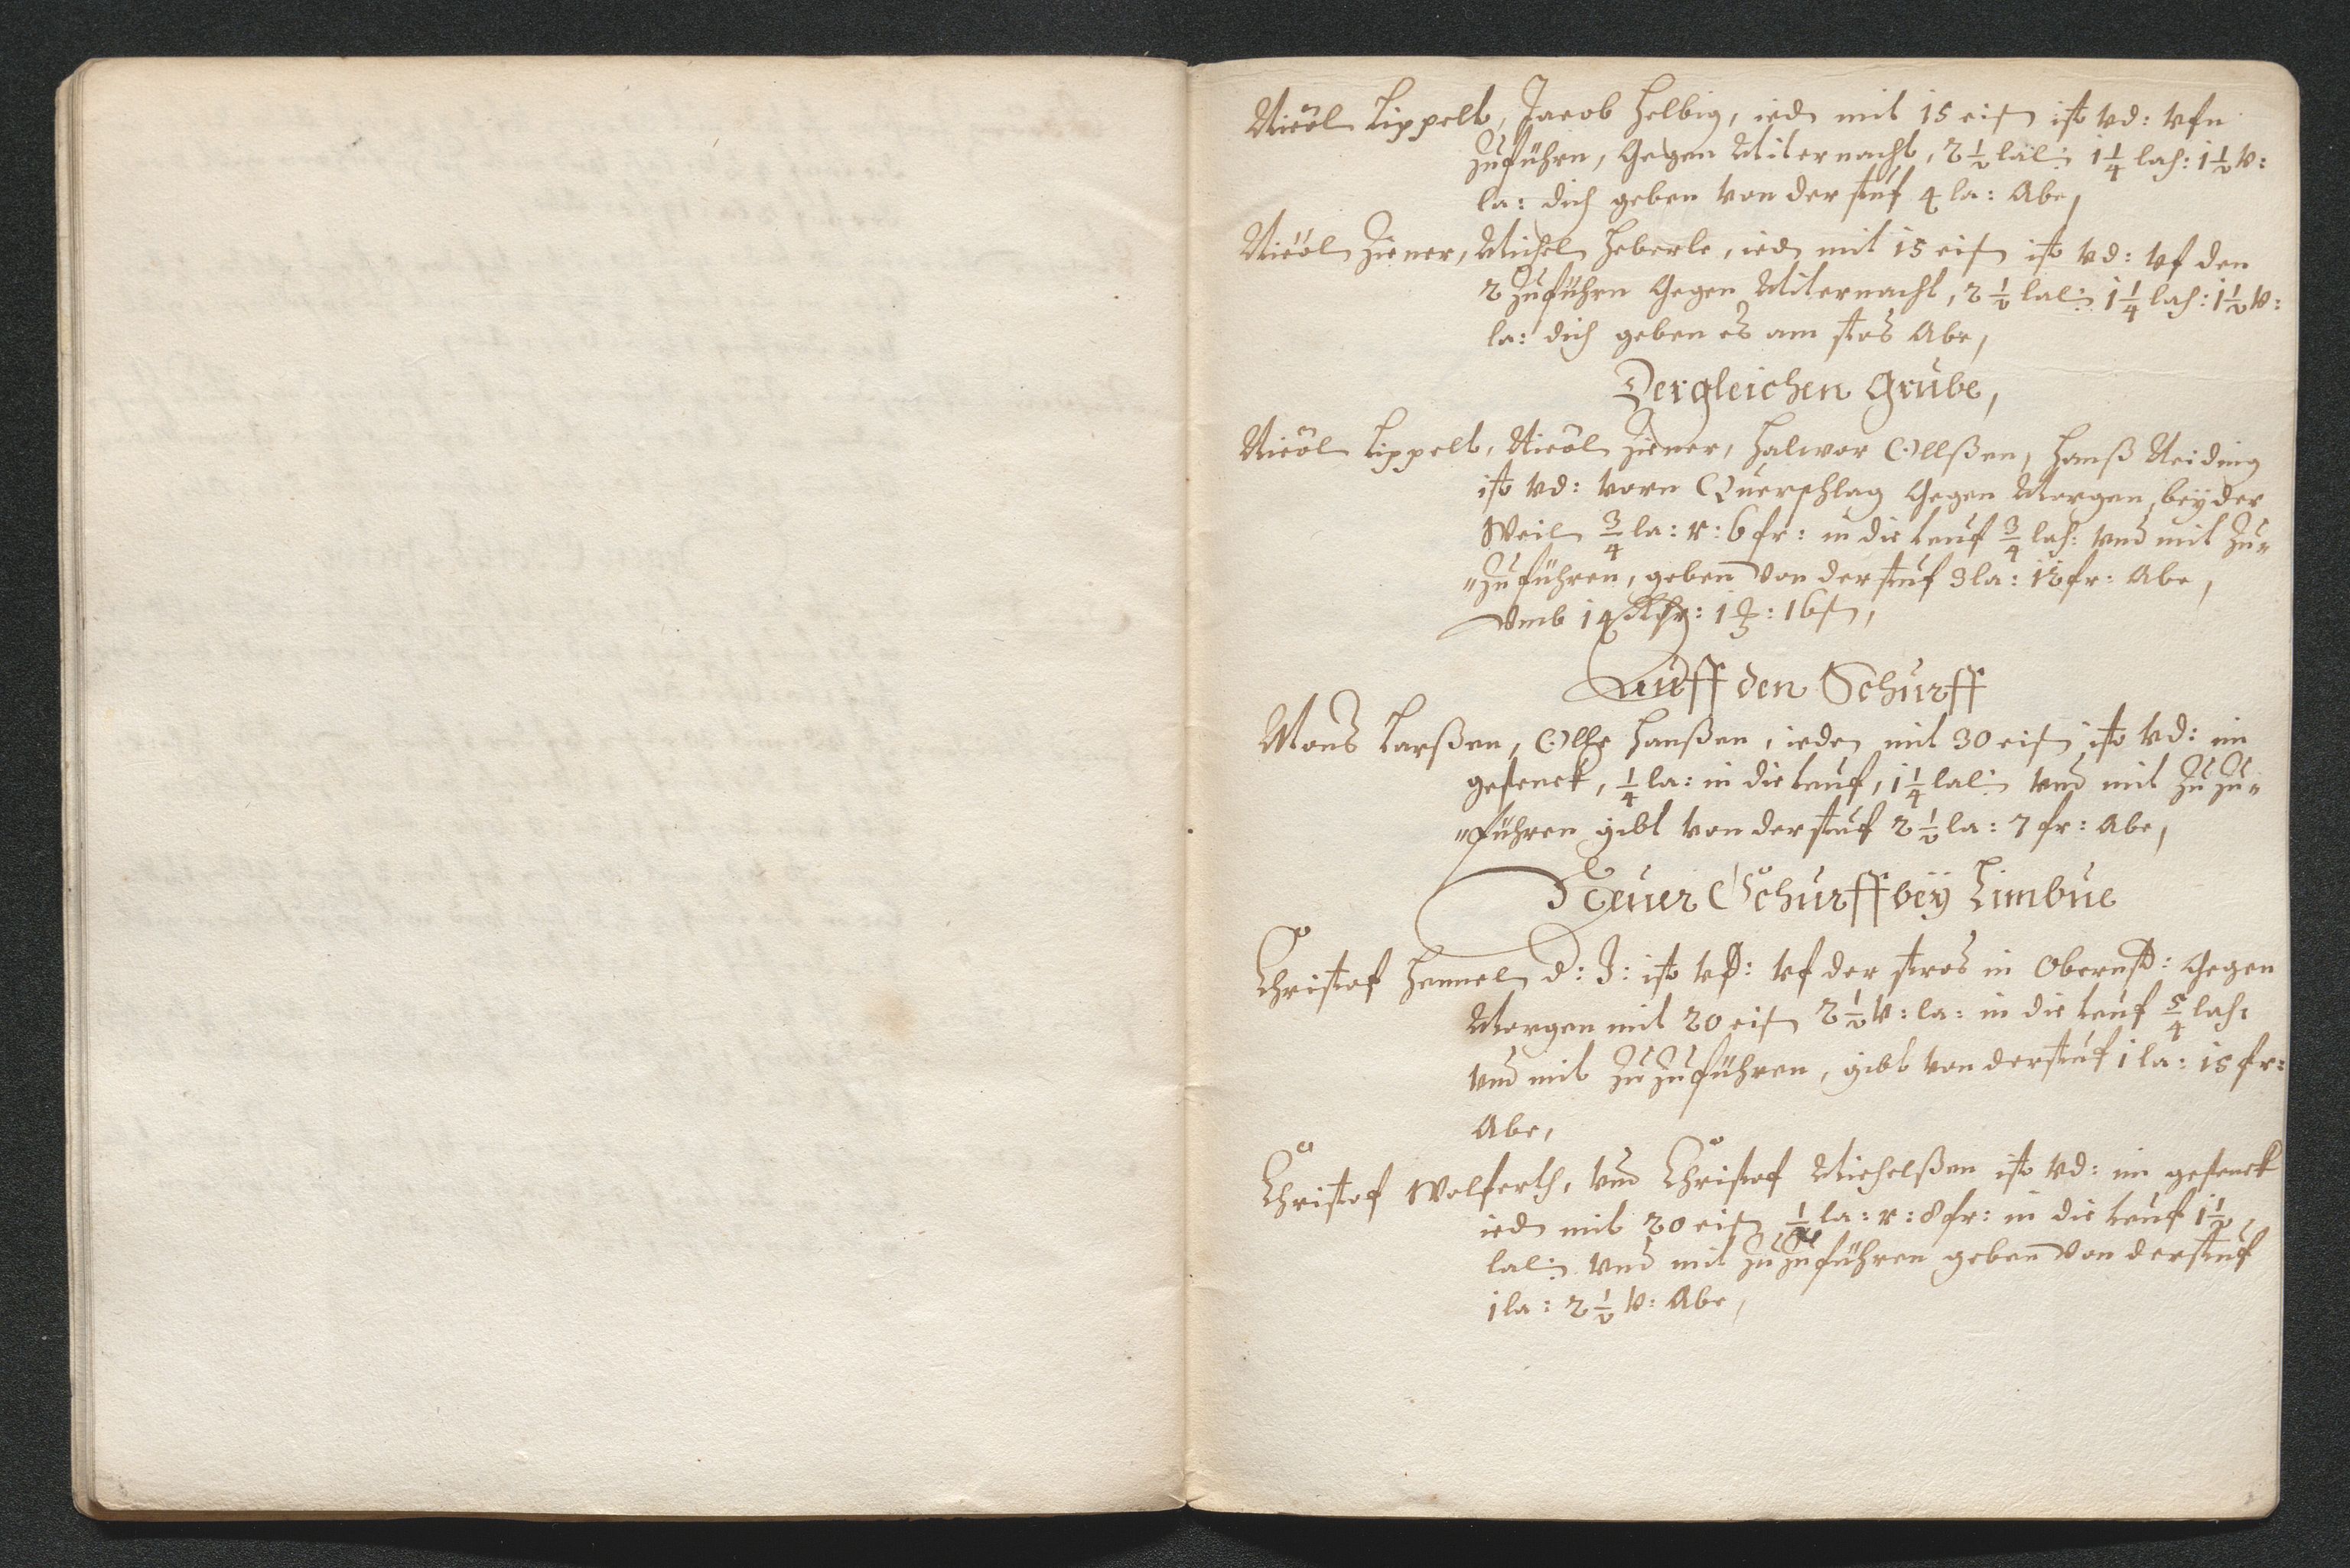 Nicol Lippelt, Jacob Helbig, ied mit 15 eis ist vd: vfn
Zuführn, Gegen Miternacht, 2½ lal: 1¼ lach: 1½ v:
la: dick geben von der stuf 4 la: Abe,
Nicol Ziener, Michel Heberle, ied mit 15 eis ist vd: vf den
2 Zuführn Gegen Miternacht, 2½ lal: 1¼ lach: 1½ v:
la: dick geben es am stos Abe,
Dergleichen Grube,
Nicol Lippelt, Nicol Ziener, Halvor Ollßen, Hanß Neiding
ist vd: vorn Querschlag Gegen Morgen, beyder
Weil ¾ la: r: 6 fr: in die teuf ¾ lach: vnd mit Zu„
„Zuführen, geben von der stuf 3 la: 12 fr: Abe,
Vmb 14 1 : 16
Auff den Schurff
Mons Larßen, Olle Hanßen, ieder mit 30 eis ist vd: im
gesenck, ¼ la: in die teuf, 1¼ lal: vnd mit Zu Zu„
„führen gibt von der stuf 2½ la: 7 fr: Abe,
Neuer Schurff bey Limbue
Christof Hemel d: J: ist vd: vf der stros in Obernst: Gegen
Morgen mit 20 eis 2½ v: la: in die teuf 5/4 lach:
vnd mit Zu Zuführen, gibt von der stuf 1 la: 15 fr:
Abe,
Christof Wolferth, vnd Christof Michelßen ist vd: im gesenck
ied mit 20 eis ½ la: r: 8 fr: in die teuf 1½
lal: vnd mit Zu Zuführen geben von der stuf
1 la: 2½ v: Abe,